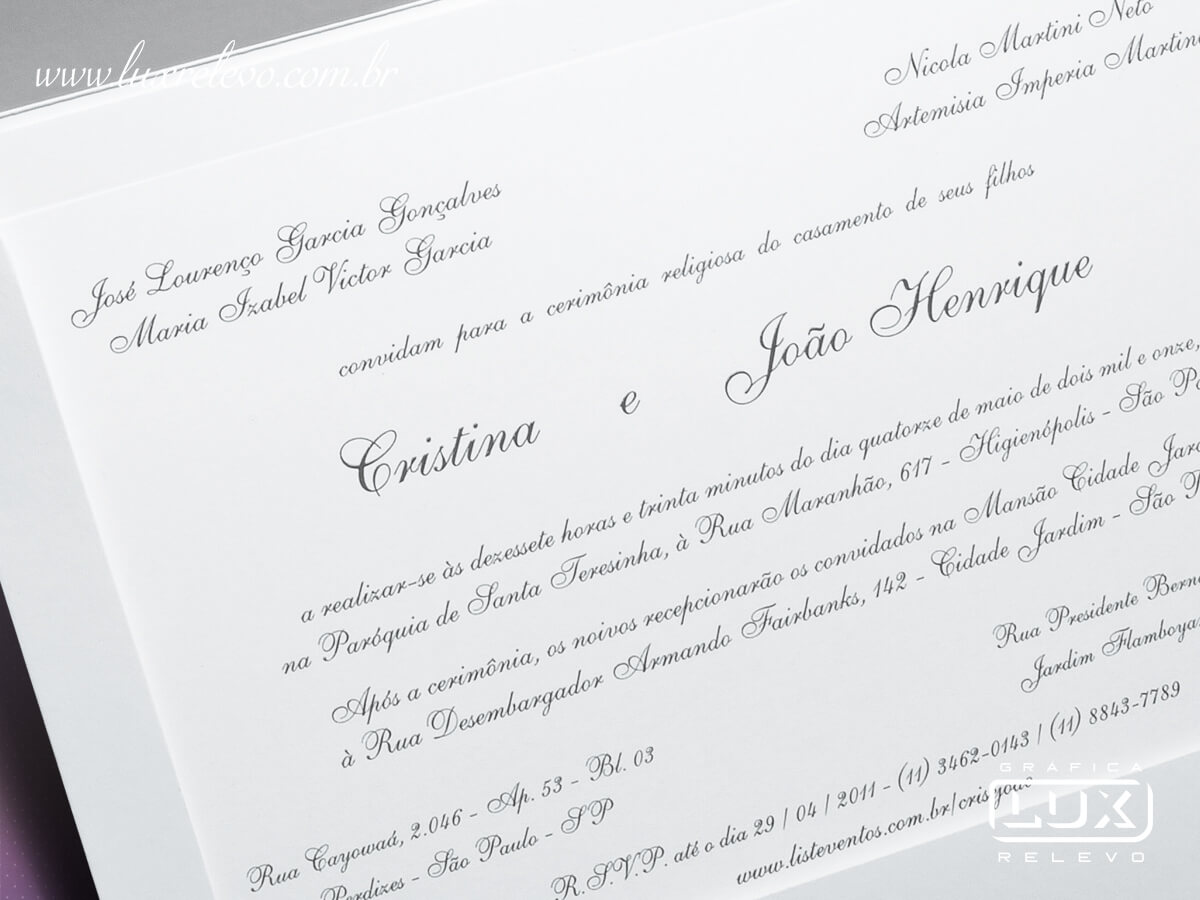 www.luxrelevo.com.br
Nicola Martini Neto
Artemisia Imperia
José Lourenço Garcia Gonçalves
Maria Izabel Victor Garcia
convidam para a cerimônia religiosa do casamento de seus filhos
Cristina e João Henrique
a realizar-se às dezessete horas e trinta minutos do dia quatorze de maio de dois mil e onze,
na Paróquia de Santa Teresinha, à Rua Maranhão, 617 - Higienópolis - São
Após a cerimônia, os noivos recepcionarão os convidados na Mansão Cidade
à Rua Desembargador Armando Fairbanks, 142 - Cidade Jardim - São
Rua Presidente
Jardim
Rua Cayowaá, 2.046 - Ap. 53 - Bl. 03
Perdizes - São Paulo - SP
R.S.V.P. até o dia 29 | 04 | 2011 - (11) 3462-0143 | (11) 8843-7789
www.listeventos.com.br/crisejoao
GRAFICA
LUX
RELEVO